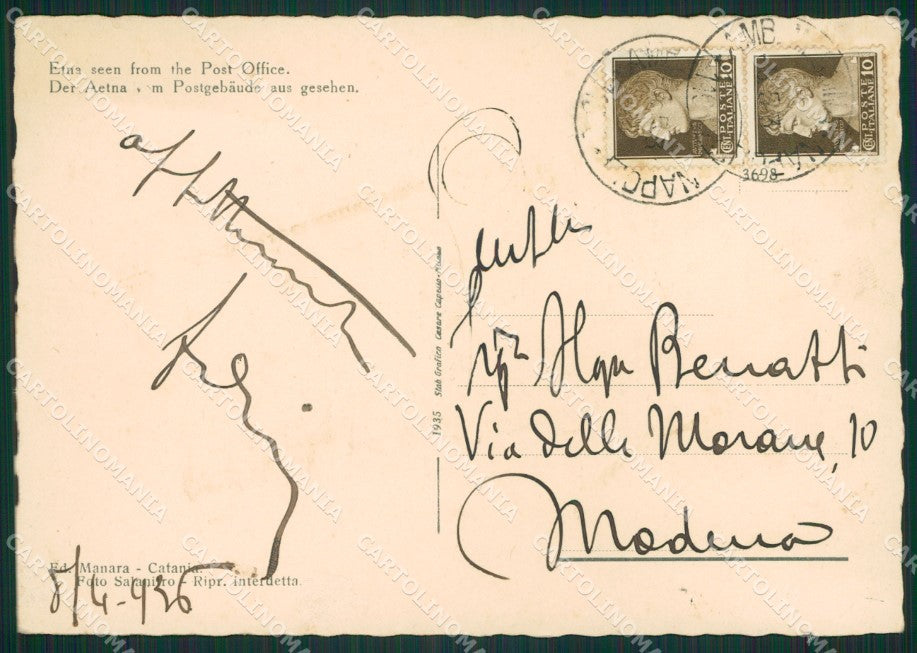 Etna seen from the Post Office.
Der Aetna vom Postgebäude aus gesehen.
8/4-936
Ed. Manara - Catania.
Foto Salanitro - Ripr. interdetta
1935 Stab Grafico Cesare Capello-Milano
POSTE ITALIANE
CENT. 10
POSTE ITALIANE
CENT. 10
AMB
NAPOLI
NAPOLI
3698
Gentile
Sigra Olga Benatti
Via delle Morane, 10
Modena
CARTOLINOMANIA